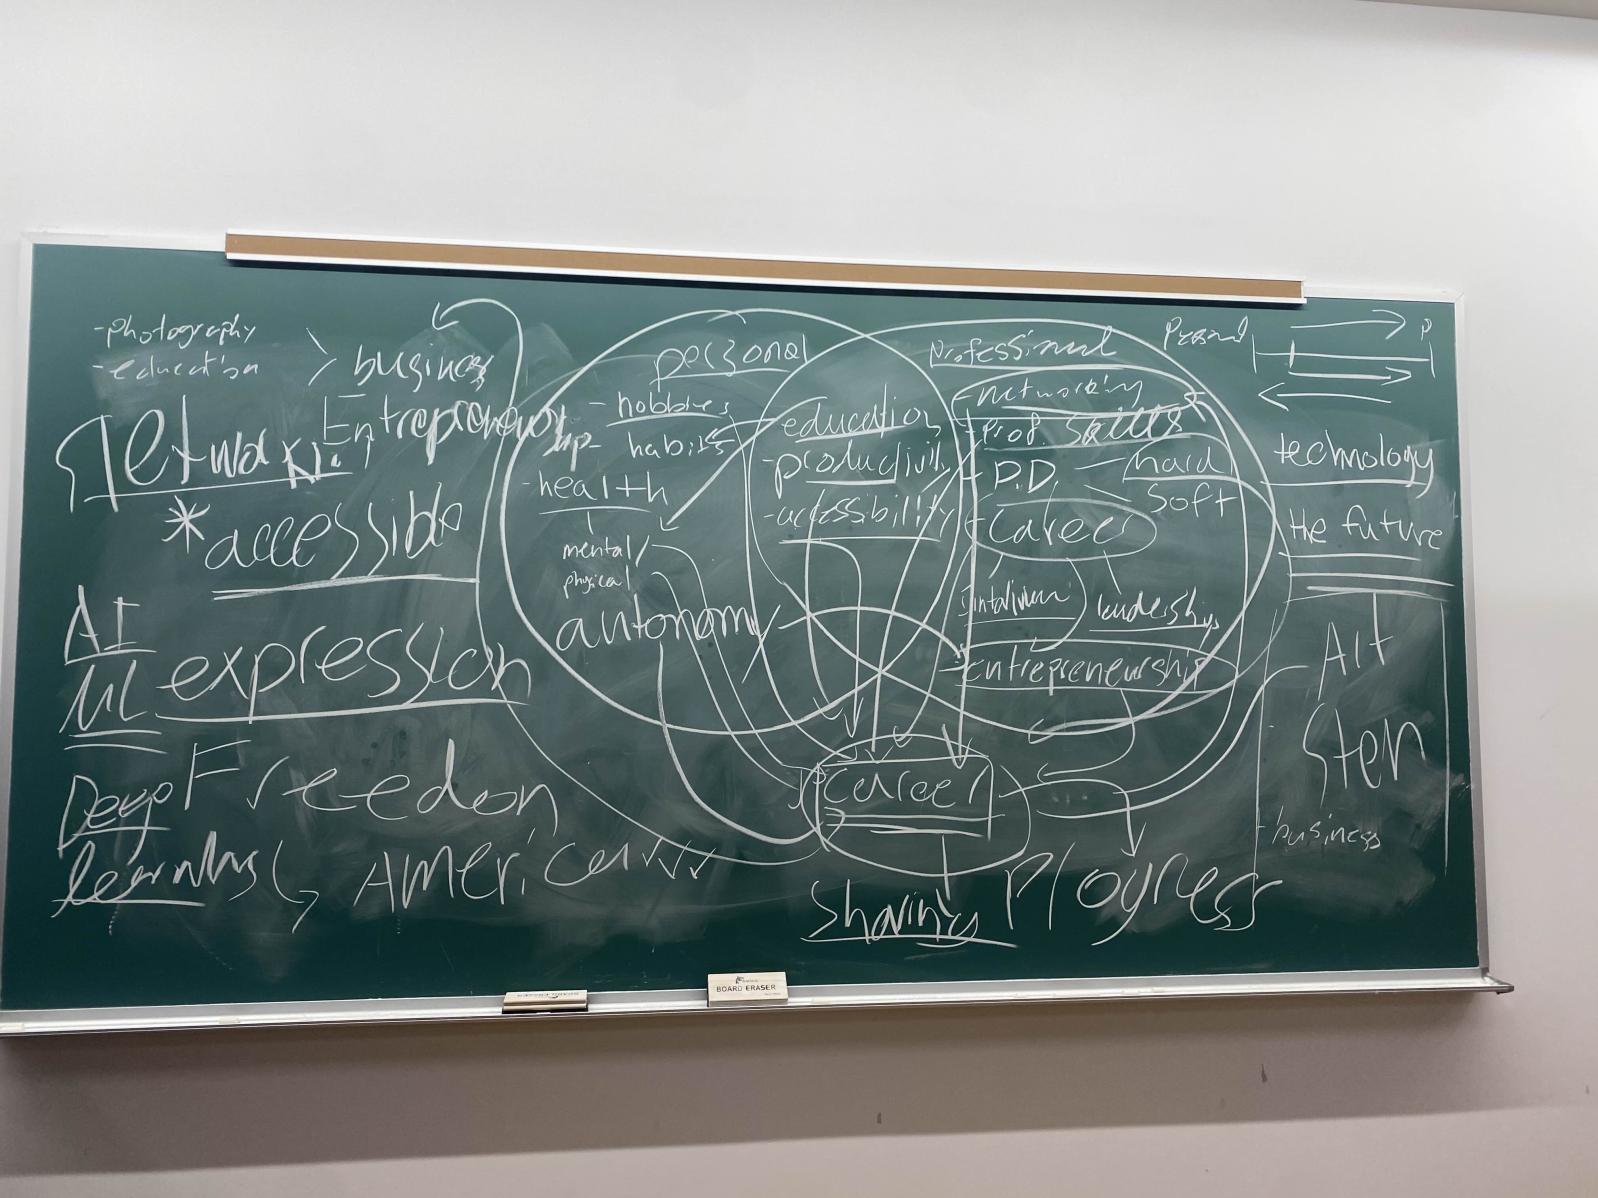 -photography
-education
business
Entrepreneur
*accessible
AI
ML
expression
Deep
learning
Freedom
America
personal
-hobbies
habits
-health
mental
physical
autonomy
-education
-productivity
-accessibility
Professional
-networking
-Prof. Skills
- P.D.
hard
soft
-career
leadership
-Entrepreneurship
career
sharing
Progress
Personal
P
technology
the future
Art
Stem
-business
BOARD ERASER